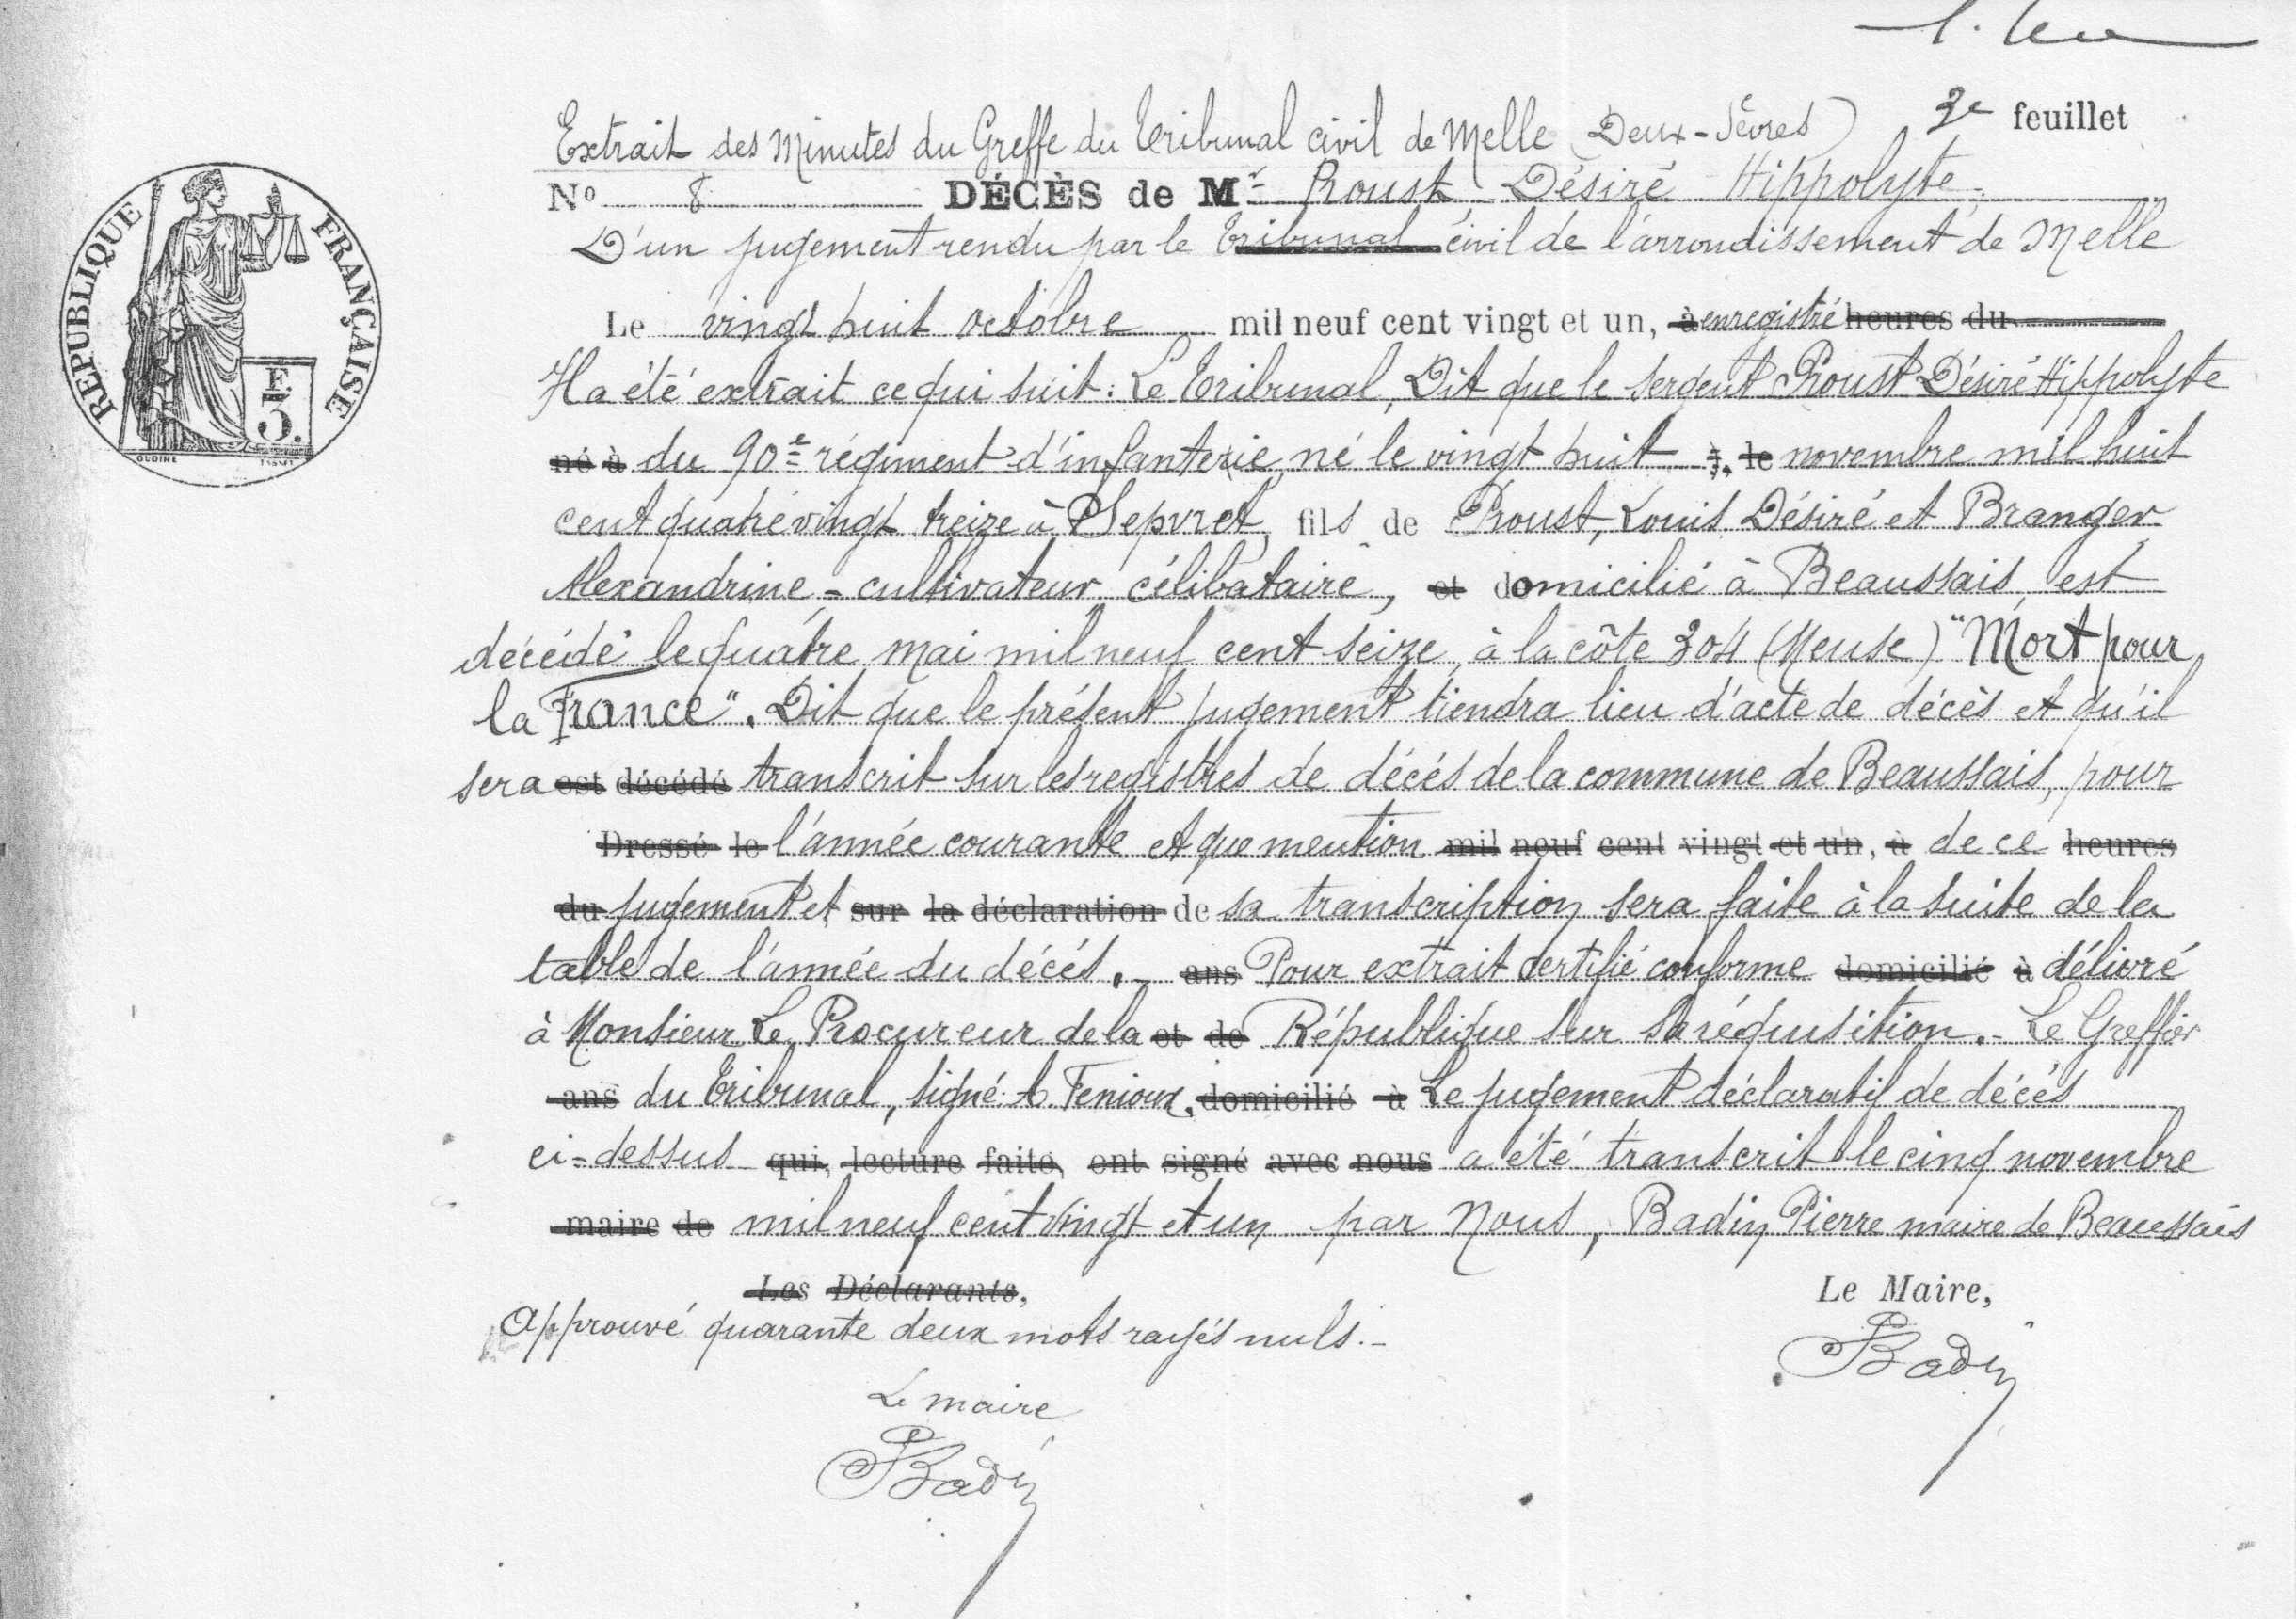 2e feuillet
Extrait des Minutes du Greffe du Tribunal civil de Melle (Deux-Sèvres)
No 8 DÉCÈS de Mr Proust Désiré Hippolyte
D'un jugement rendu par le Tribunal civil de l'arrondissement de Melle
Le vingt huit octobre mil neuf cent vingt et un, à enregistré heures du
Il a été extrait ce qui suit : Le Tribunal, Dit que le sergent Proust Désiré Hippolyte
né à du 90e régiment d'infanterie né le vingt huit , le novembre mil huit
cent quatre vingt treize à Sepvret, fils de Proust, Louis Désiré et Branger
Alexandrine - cultivateur célibataire, et domicilié à Beaussais est
décédé le quatre mai mil neuf cent seize, à la côte 304 (Meuse) "Mort pour
la France". Dit que le présent jugement tiendra lieu d'acte de décès et qu'il
sera est décédé transcrit sur les registres de décès de la commune de Beaussais, pour
Dressé le l'année courante et que mention mil neuf cent vingt et un, à de ce heures
du jugement et sur la déclaration de sa transcription sera faite à la suite de la
table de l'année du décès. - ans Pour extrait certifié conforme domicilié à délivré
à Monsieur Le Procureur de la et de République sur sa réquisition. - Le Greffier
ans du Tribunal, signé : Fenioux, domicilié à Le jugement déclaratif de décès
ci-dessus qui, lecture faite, ont signé avec nous a été transcrit le cinq novembre
maire de mil neuf cent vingt et un par Nous, Badin Pierre maire de Beaussais
Les Déclarants,
Le Maire,
Approuvé quarante deux mots rayés nuls. -
Badin
Le maire
Badin
REPUBLIQUE FRANÇAISE
F.
3.
OUDINÉ